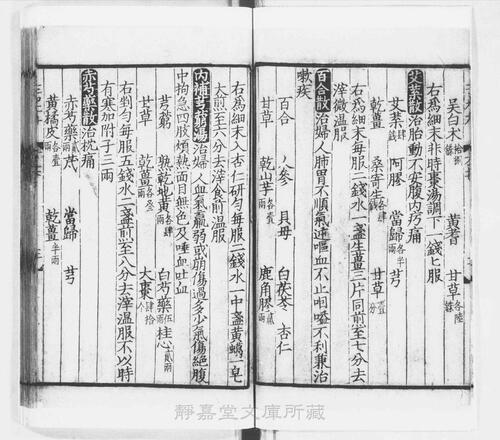 吴白木 拾捌銖 黄耆 甘草 各陸銖
右爲細末非時棗湯調下一錢匕服
艾葉散治胎動不安腹内疠痛
艾葉 阿膠 當歸 各半兩 甘草
乾薑 桑寄生 各壹分
右爲細末每服二錢水一盞生薑三片同煎至七分去
滓微温服
百合散治婦人肺胃不順氣逆嘔血不止咽嗌不利兼治
嗽疾
百合 人參 貝母 白茯苓 杏仁
甘草 乾山芋 各壹兩 鹿角膠 貳兩
右爲細末入杏仁研勻每服二錢水一中盞黄蠟一皂
大煎至六分去滓食前温服
内補芎藭湯治婦人血氣羸弱或崩傷過多少氣傷絶腹
中拘急四肢煩熱面目無色及唾血吐血
芎藭 熟乾地黄 各肆兩 白芍藥 伍兩 桂心 貳兩
甘草 乾薑 各叁兩 大棗 肆拾
右剉勻每服五錢水二盞煎至八分去滓温服不以時
有寒加附子三兩
赤芍藥散治枕痛
赤芍藥 貳兩 當歸 芎
黄橘皮 各壹兩 乾薑 各半兩
靜嘉堂文庫所蔵